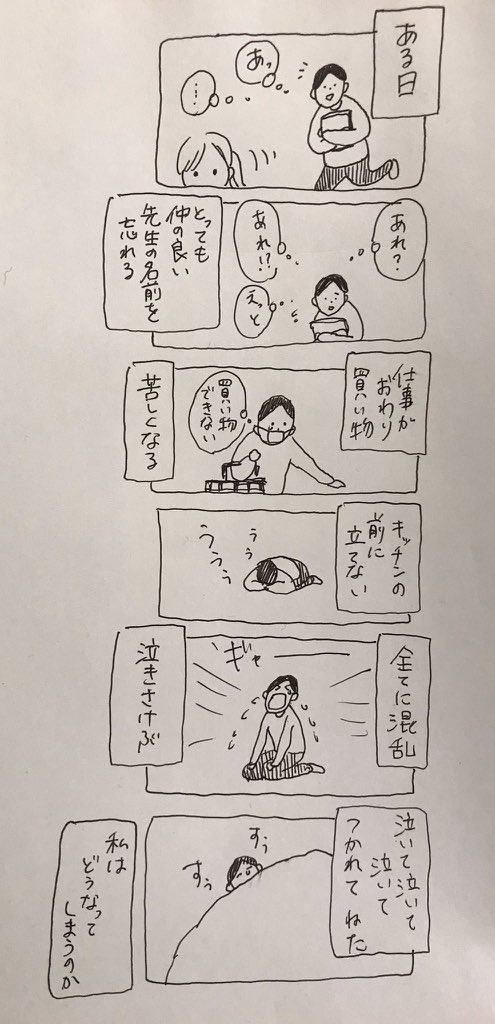 ある日
あっ
…
とっても
仲の良い
先生の名前を
忘れる
あれ?
あれ!?
えっと
仕事が
おわり
買い物
買い物
できない
苦しくなる
キッチンの
前に
立てない
うぅ
うぅぅ
全てに混乱
ギャー
泣きさけぶ
泣いて泣いて
泣いて
つかれてねた
すぅ
すぅ
私は
どうなって
しまうのか